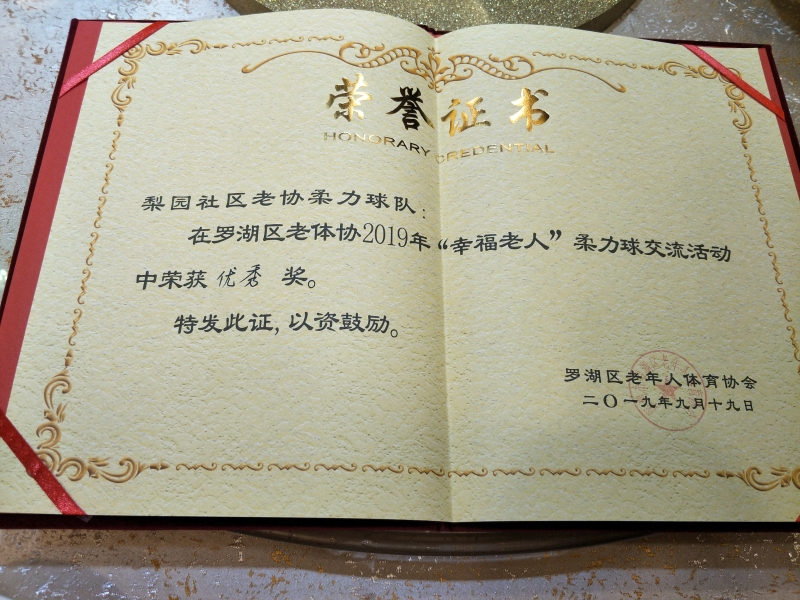 荣誉证书
HONORARY CREDENTIAL
梨园社区老协柔力球队：
在罗湖区老体协2019年“幸福老人”柔力球交流活动
中荣获 优秀 奖。
特发此证，以资鼓励。
罗湖区老年人体育协会
二〇一九年九月十九日